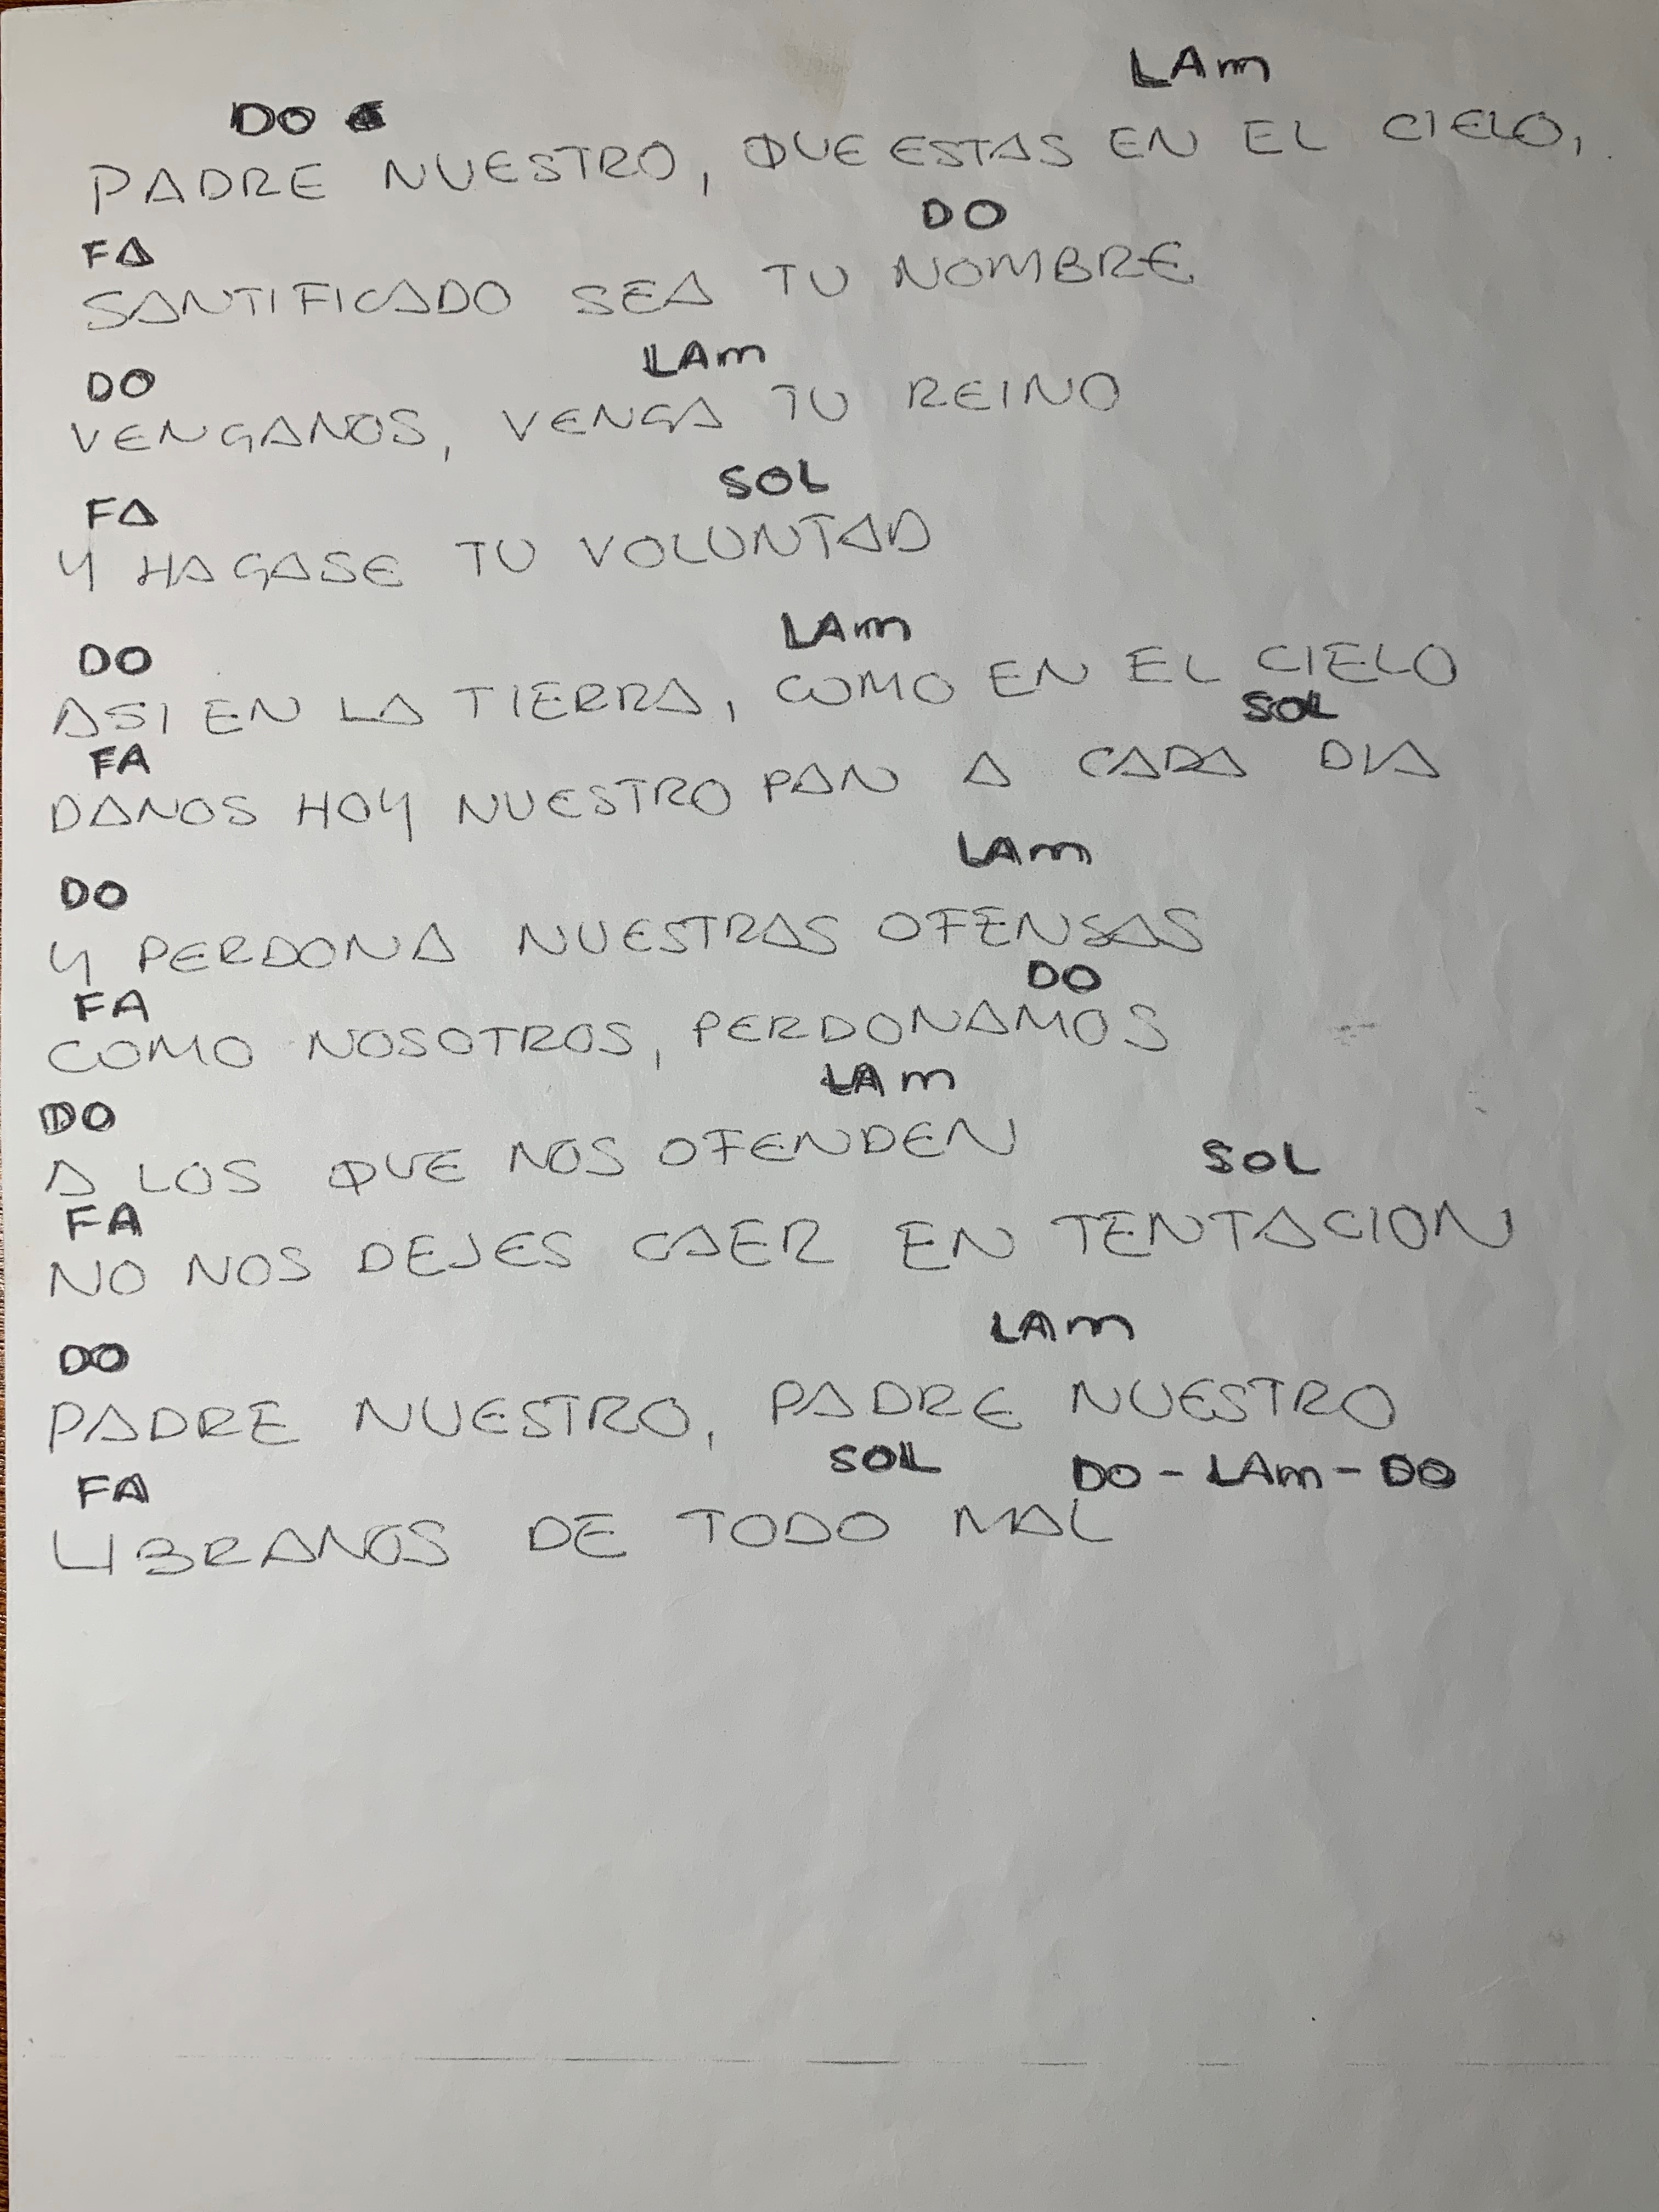 DO LAm
PADRE NUESTRO, QUE ESTAS EN EL CIELO,
FA DO
SANTIFICADO SEA TU NOMBRE
DO LAm
VENGANOS, VENGA TU REINO
FA SOL
Y HAGASE TU VOLUNTAD
DO LAm
ASI EN LA TIERRA, COMO EN EL CIELO
FA SOL
DANOS HOY NUESTRO PAN A CADA DIA
DO LAm
Y PERDONA NUESTRAS OFENSAS
FA DO
COMO NOSOTROS, PERDONAMOS
DO LAm
A LOS QUE NOS OFENDEN
FA SOL
NO NOS DEJES CAER EN TENTACION
DO LAm
PADRE NUESTRO, PADRE NUESTRO
FA SOL DO - LAm - DO
LIBRANOS DE TODO MAL